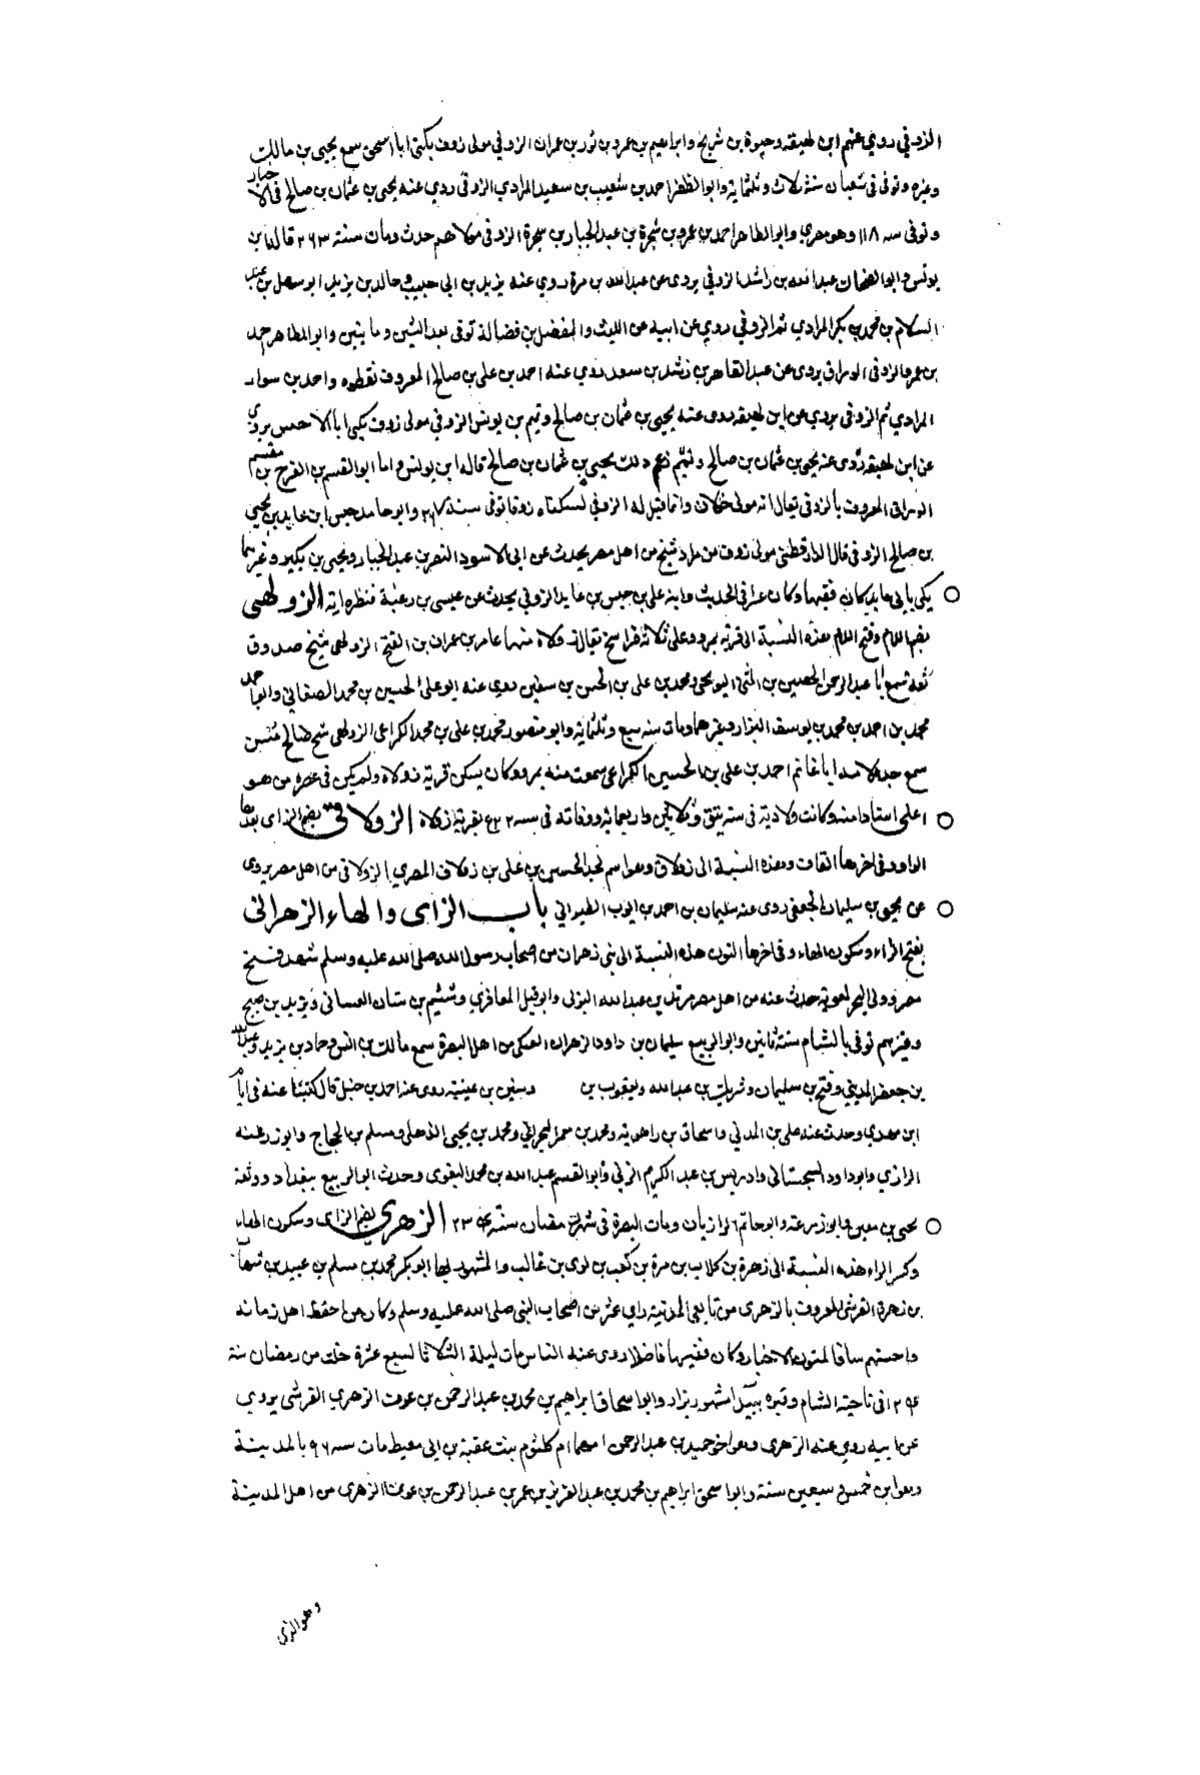 الزوفي روي عنهم ابن لهيعة وحيوة بن شريح وابراهيم بن عمرو بن ثور بن عمران الزوفي مولى زوف يكنى ابا اسحق سمع يحيى بن مالك
وغيره وتوفى فى شعبان سنة ثلاث وثلثماية وابوالظفر احمد بن شعيب بن سعيد المرادي الزوفى روي عنه يحيى بن عثمان بن صالح فى الاخبار
وتوفى سه ١١٨ وهو مصري وابوالطاهر احمد بن عمرو بن شجرة بن عبدالجبار بن شجرة الزوفى مولاهم حدث ومات سنة ٢٦٣ قاله ابن
يونس وابوالضحاك عبد الله بن راشد الزوفي يروى عن عبدالله بن مرة روي عنه يزيد بن ابى حبيب وخالد بن يزيد ابو سهل بن عبد
السلام بن محمد بن بكر المرادي ثم الزوفي روي عن ابيه عن الليث والمفضل بن فضالة توفى بعد الثنين وماتين وابوالطاهر احمد
بن عمر والزوفى الوراق يروى عن عبدالقاهر بن رشد بن سعد روي عنه احمد بن على بن صالح المعروف نقطوه واحد بن سواد
المرادي ثم الزوفى يروي عن ابن لهيعه روى عنه يحيى بن عثمان بن صالح وتيم بن يونس الزوفي مولى زوف يكنى ابا الاحمس يروي
عن ابن لهيعه روى عنه يحيى بن عثمان بن صالح وتيم زعم ذلك يحيى بن عثمان بن صالح قاله ابن يونس واما ابوالقسم بن الفرج بن مقسم
الوراق المعروف بالزوفى يقال انه مولى خولان وانما قيل له الزوفي لسكناه زوقا توفى سنة ٢٦٧ وابو حامد حبس ابن عايد بن يحيى
بن صالح الزوفى قال الدارقطنى مولى زوف من مراد شيخ من اهل مصر يحدث عن ابى الاسود النضر بن عبدالجبار ويحيى بن بكير وغيرهما
يكنى بابى حامد كان فقيها وكان عزا فى الحديث وابنه على بن حبس بن عايد الزوفي يحدث عن عيسى بن زغبة الزولهى
بضم اللام وفتح اللام هذه النسبة الى قرية بمرو وعلى ثلاثة فراسخ يقال لها زولاه منها عامر بن عمران بن الفتح الزولهى شيخ صدوق
ثقه سمع ابا عبدالرحمن الحصين بن المثنى البويحى ومحمد بن على بن الحسن بن سفين روي عنه ابو على الحسين بن محمد الصغانى وابو احمد
محمد بن احمد بن محمد بن يوسف البزار وغيرهما ومات سنه سبع وثلثماية وابو منصور محمد بن على بن محمد الكراعى الزولهى شيخ صالح مسن
سمع جده لامه ابا غانم احمد بن على بن الحسين الكراعى سمعت منه بمرو وكان يسكن قرية زولاه ولم يكن فى عصره من هو
اعلى اسنادا منه وكانت ولادته فى سنه وثلاثين واربعماية ووفاته فى سنه بقرية زولاه الزولاقى بضم الزاى بعدها
الواو وفى اخرها القاف وهذه النسبة الى زولاق وهو اسم لجد الحسين بن على بن زولاق المصري الزولاقى من اهل مصر يروى
عن يحيى بن سليمان الجعفى روى عنه سليمان بن احمد بن ايوب الطبرانى باب الزاى والهاء الزهرانى
بفتح الزاء وسكون الهاء وفى اخرها النون هذه النسبة الى بنى زهران من اصحاب رسول الله صلى الله عليه وسلم شهد فتح
مصر وولى البحر لمعوية حدث عنه من اهل مصر مرثد بن عبدالله اليزنى وابوقبيل المعافري وشيم بن بيتان الغسانى ويزيد بن صبح
وغيرهم توفى بالشام سنة ثمانين وابوالربيع سليمان بن داود الزهرانى العتكى من اهل البصرة سمع مالك بن انس وحماد بن يزيد وعبدالله
بن جعفر المديني وفتح بن سليمان وشريك بن عبدالله ويعقوب بن وسفين بن عيينة روى عنه احمد بن حنبل قال كتبنا عنه فى ايام
ابن مهدي وحدث عنه على بن المدنى واسحاق بن راهوية ومحمد بن معمر البحرانى ومحمد بن يحيى الذهلى ومسلم بن الحجاج وابوزرعه
الرازي وابوداود السجستانى وادريس بن عبدالكريم المزنى وابوالقسم عبدالله بن محمد البغوى وحدث ابوالربيع ببغداد ووثقه
يحيى بن معين وابوزرعة وابوحاتم الرازيان ومات البصرة فى شهر رمضان سنة ٢٣٤ الزهري بضم الزاى وسكون الهاء
وكسر الراء هذه النسبة الى زهرة بن كلاب بن مرة بن كعب بن لوى بن غالب والمشهور لها ابو بكر محمد بن مسلم بن عبيد بن شهاب
بن زهرة القرشى المعروف بالزهرى من تابعى المدينة راي عشرة من اصحاب النبى صلى الله عليه وسلم وكان من احفظ اهل زمانه
واحسنهم سياقا لمتون الاخبار وكان فقيها فاضلا روى عنه الناس مات ليلة الثلاثا لسبع عشرة خلت من رمضان سنة
١٢٤ فى ناحية الشام وقبره مشهور يزار وابو اسحاق ابراهيم بن محمد بن عبدالرحمن بن عوف الزهري القرشى يروي
عن ابيه روي عنه الزهرى وهو اخو حميد بن عبدالرحمن امهما ام كلثوم بنت عقبة بن ابى معيط مات سنه ٩٦ بالمدينة
وهو ابن خمس وسبعين سنة وابو اسحق ابراهيم بن محمد بن عبدالعزيز بن عمر بن عبدالرحمن بن عوف الزهرى من اهل المدينة
وهو الذي